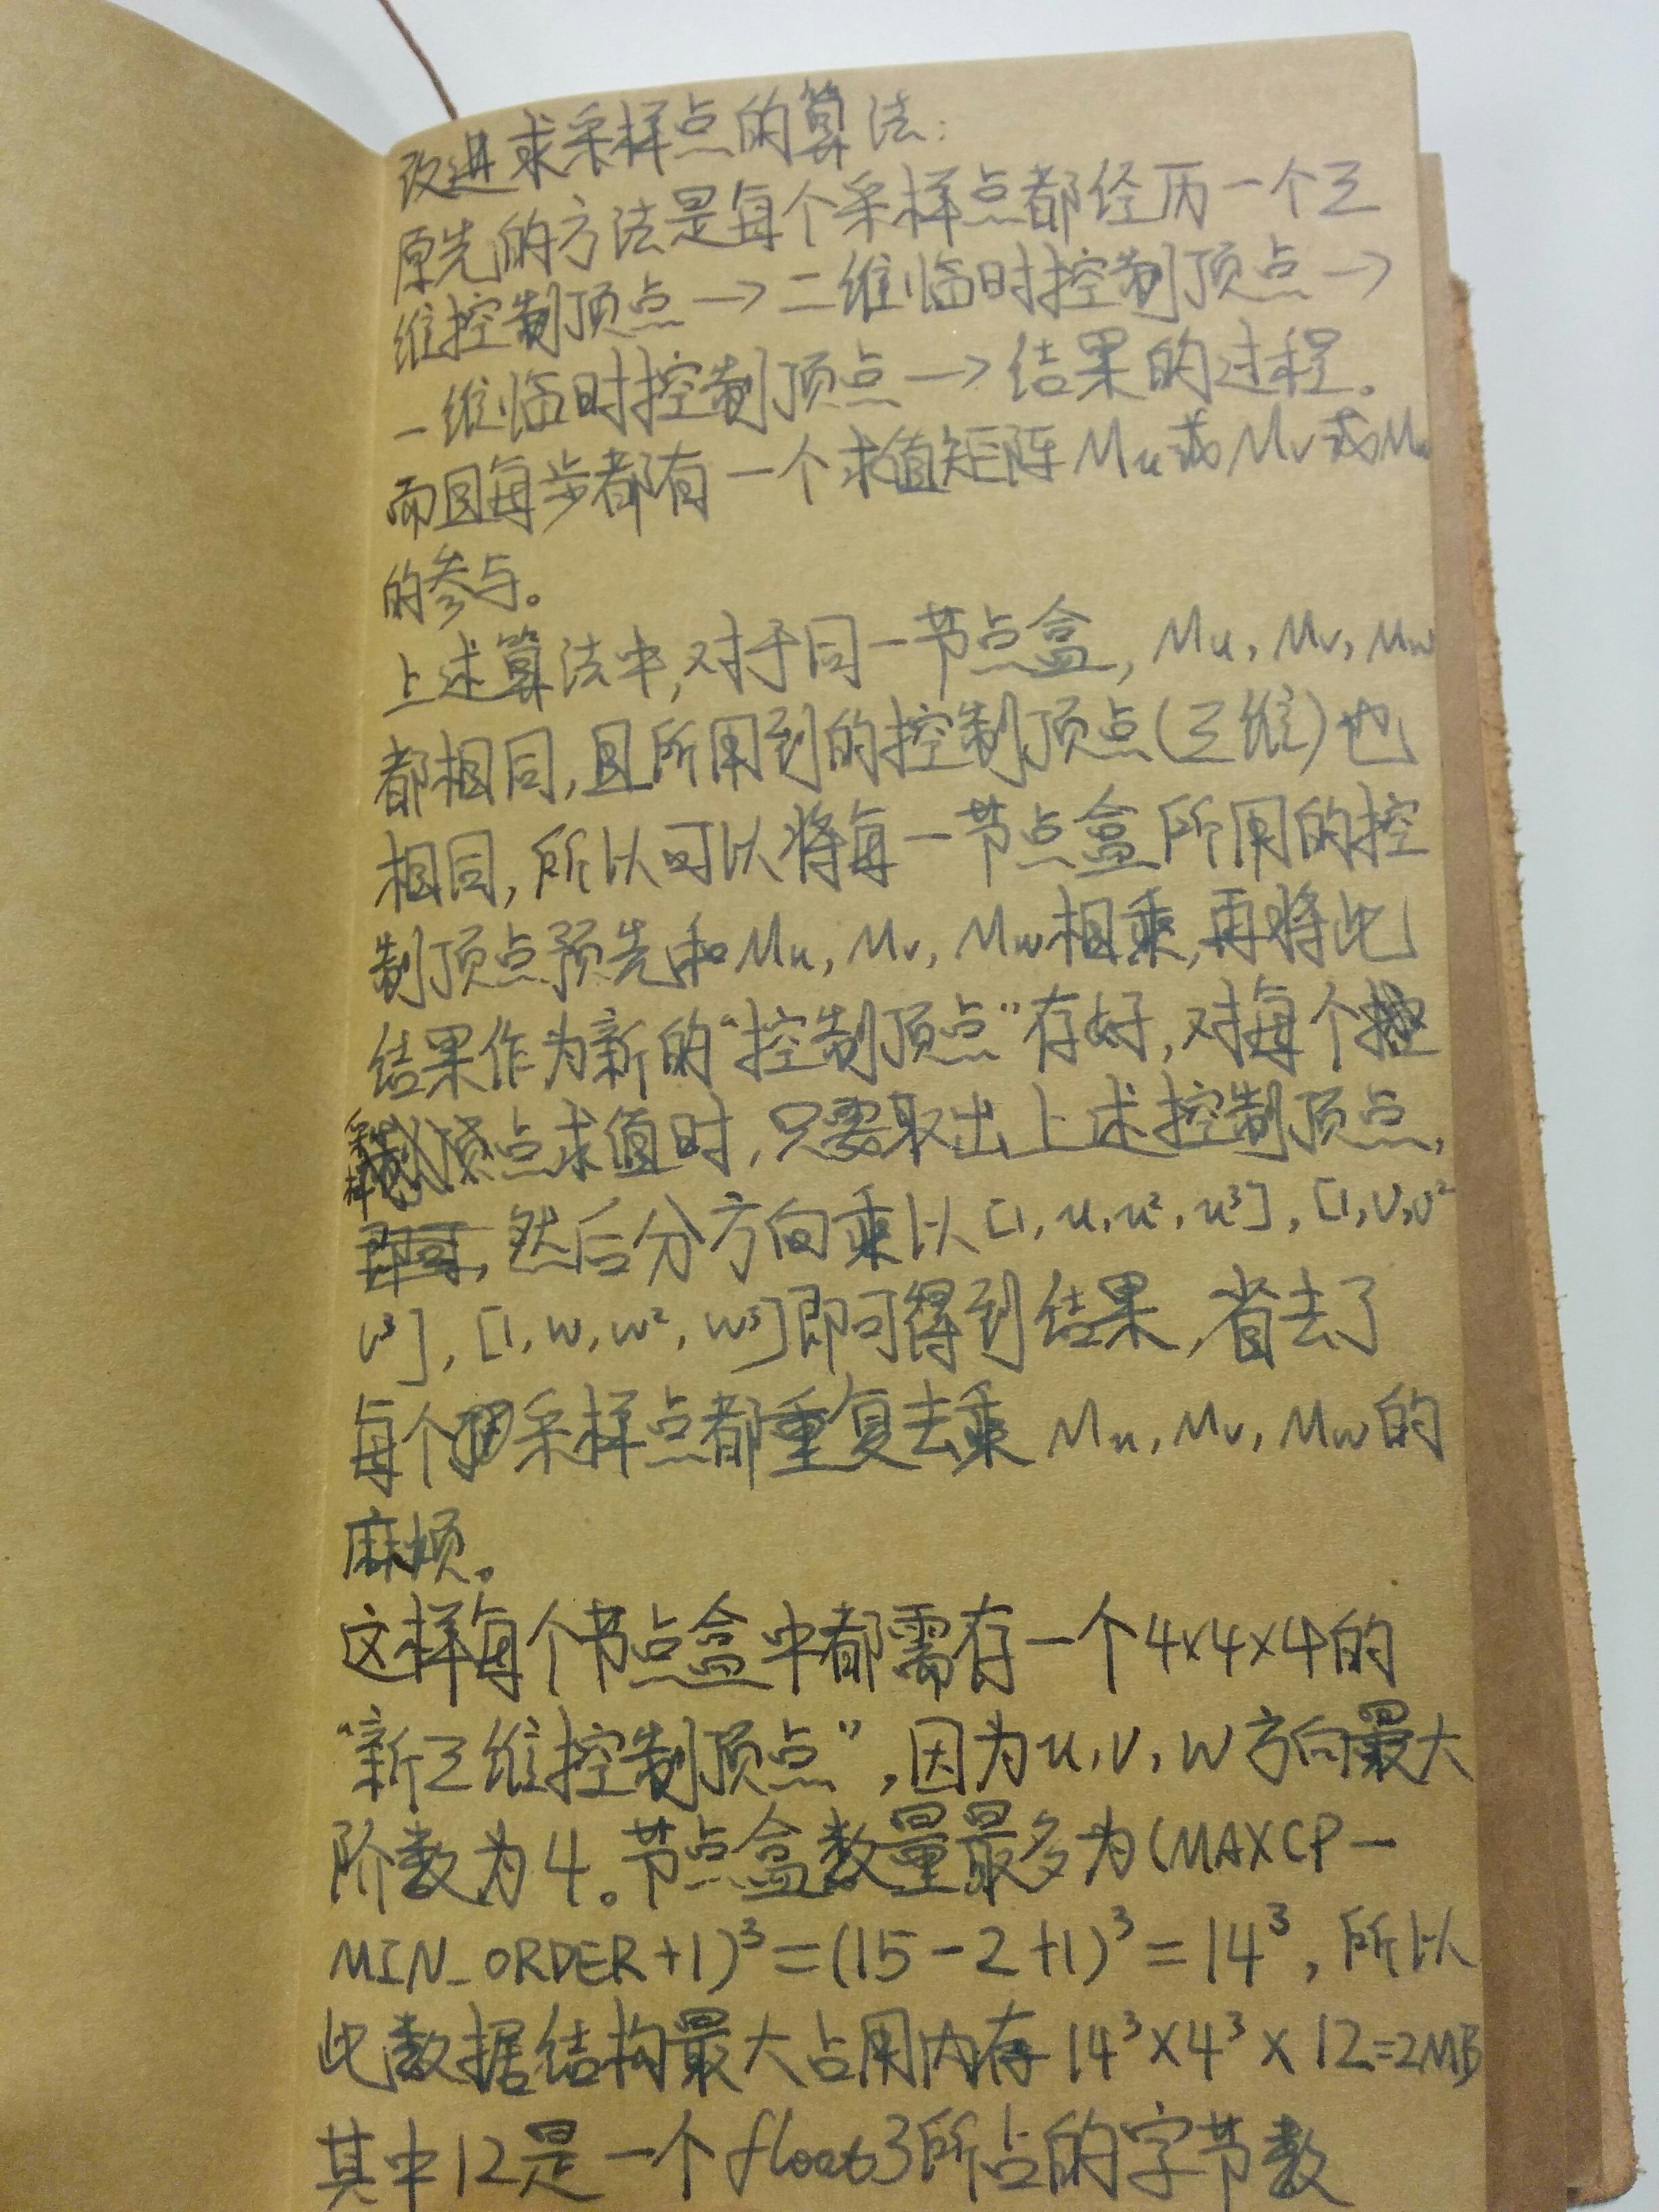 改进求采样点的算法：
原先的方法是每个采样点都经历一个三
维控制顶点→二维临时控制顶点→
一维临时控制顶点→结果的过程。
而且每步都有一个求值矩阵Mu或Mv或Mw
的参与。
上述算法中,对于同一节点盒, Mu, Mv, Mw
都相同,且所用到的控制顶点(三维)也
相同,所以可以将每一节点盒所用的控
制顶点预先和Mu, Mv, Mw相乘,再将此
结果作为新的“控制顶点”存好,对每个
采样点求值时,只要取出上述控制顶点,
然后分方向乘以[1, u, u², u³], [1, v, v²
v³], [1, w, w², w³]即可得到结果,省去了
每个采样点都重复去乘 Mu, Mv, Mw的
麻烦。
这样每个节点盒中都需存一个4×4×4的
“新三维控制顶点”,因为u, v, w方向最大
阶数为4。节点盒数量最多为(MAXCP-
MIN_ORDER+1)³=(15-2+1)³=14³, 所以
此数据结构最大占用内存14³×4³×12=2MB
其中12是一个float3所占的字节数